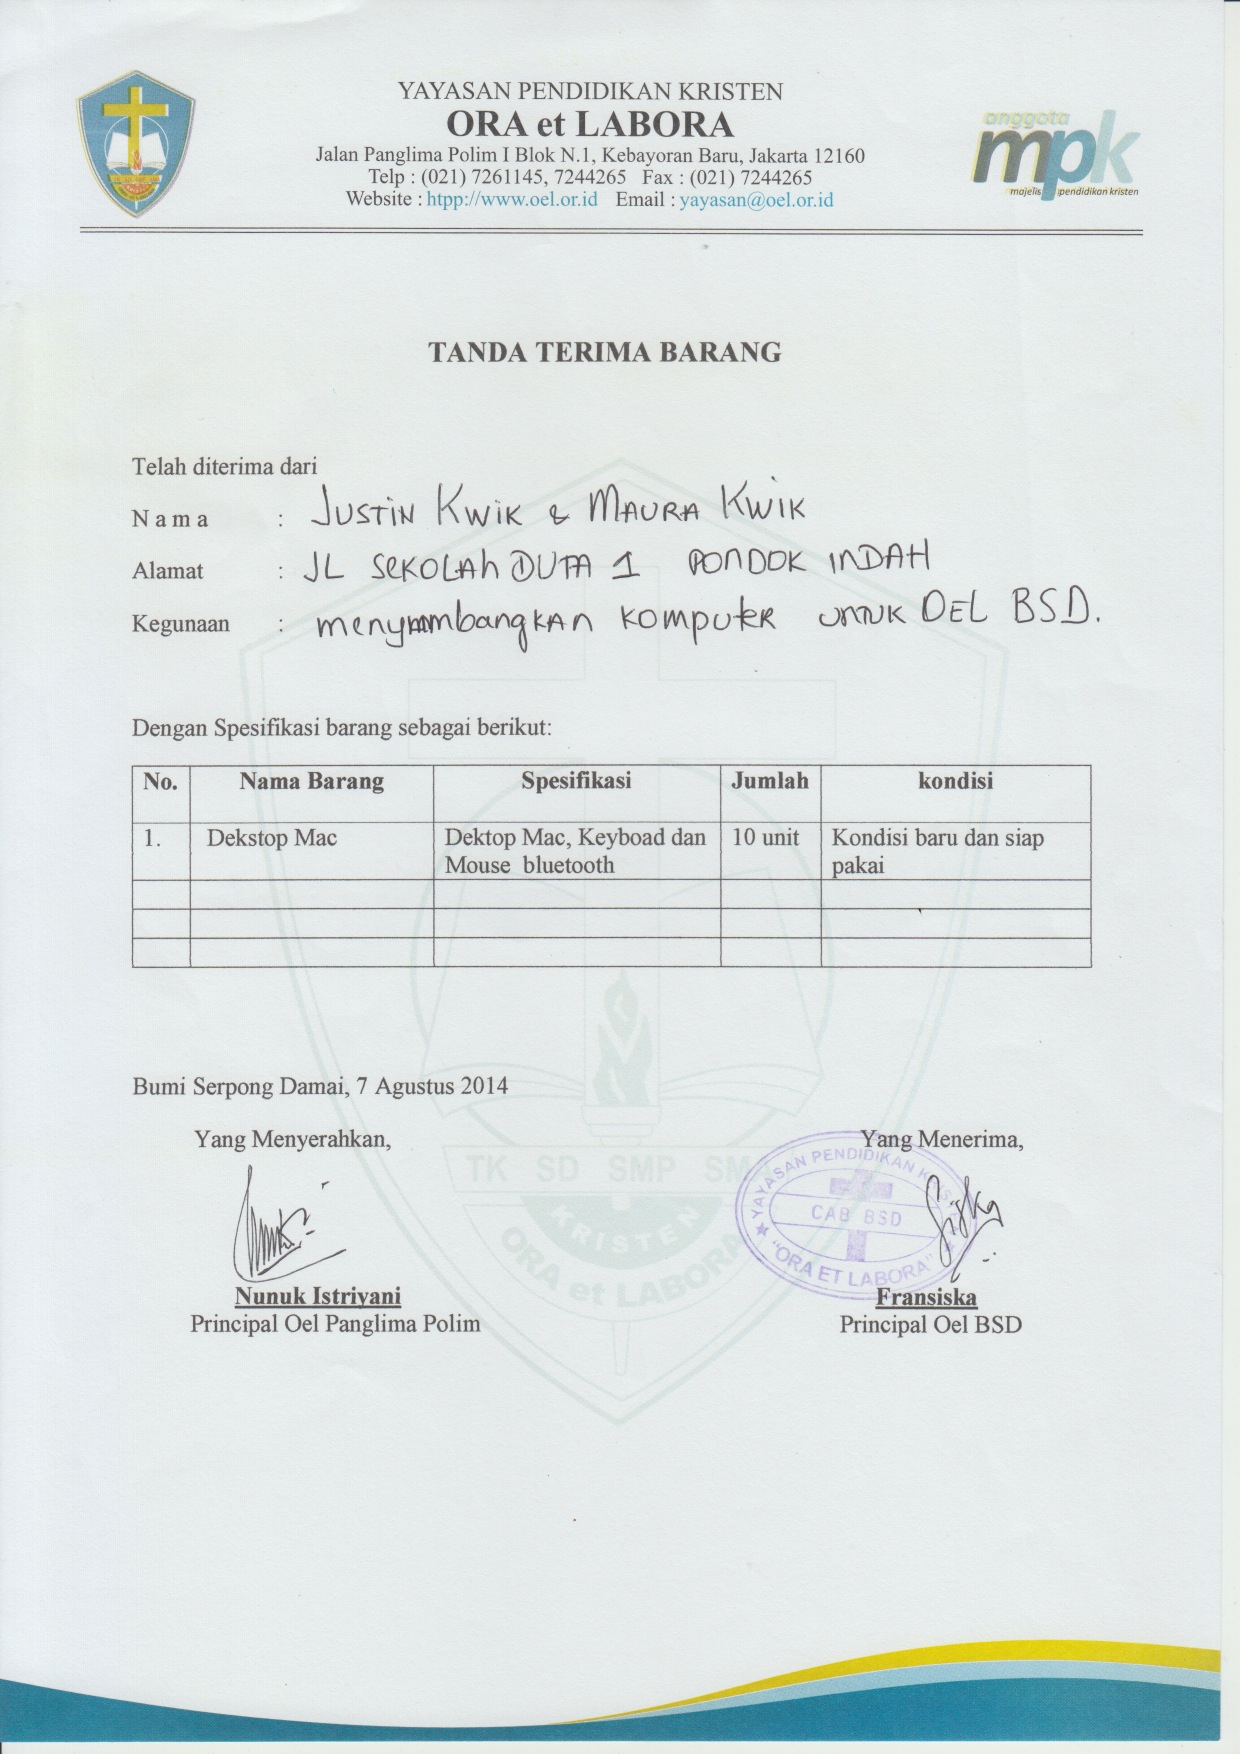 YAYASAN PENDIDIKAN KRISTEN
ORA et LABORA
Jalan Panglima Polim I Blok N.1, Kebayoran Baru, Jakarta 12160
Telp : (021) 7261145, 7244265 Fax : (021) 7244265
Website : htpp://www.oel.or.id Email : yayasan@oel.or.id
anggota
mpk
majelis pendidikan kristen
TANDA TERIMA BARANG
Telah diterima dari
N a m a : JUSTIN KWIK & MAURA KWIK
Alamat : JL SEKOLAH DUTA 1 PONDOK INDAH
Kegunaan : menyumbangkan komputer untuk OEL BSD.
Dengan Spesifikasi barang sebagai berikut:
No. Nama Barang Spesifikasi Jumlah kondisi
1. Dekstop Mac Dektop Mac, Keyboad dan 10 unit Kondisi baru dan siap
Mouse bluetooth pakai
Bumi Serpong Damai, 7 Agustus 2014
Yang Menyerahkan, Yang Menerima,
TK SD SMP
KRISTEN
ORA et LABORA
YAYASAN PENDIDIKAN
CAB BSD
"ORA ET LABORA"
Nunuk Istriyani Fransiska
Principal Oel Panglima Polim Principal Oel BSD